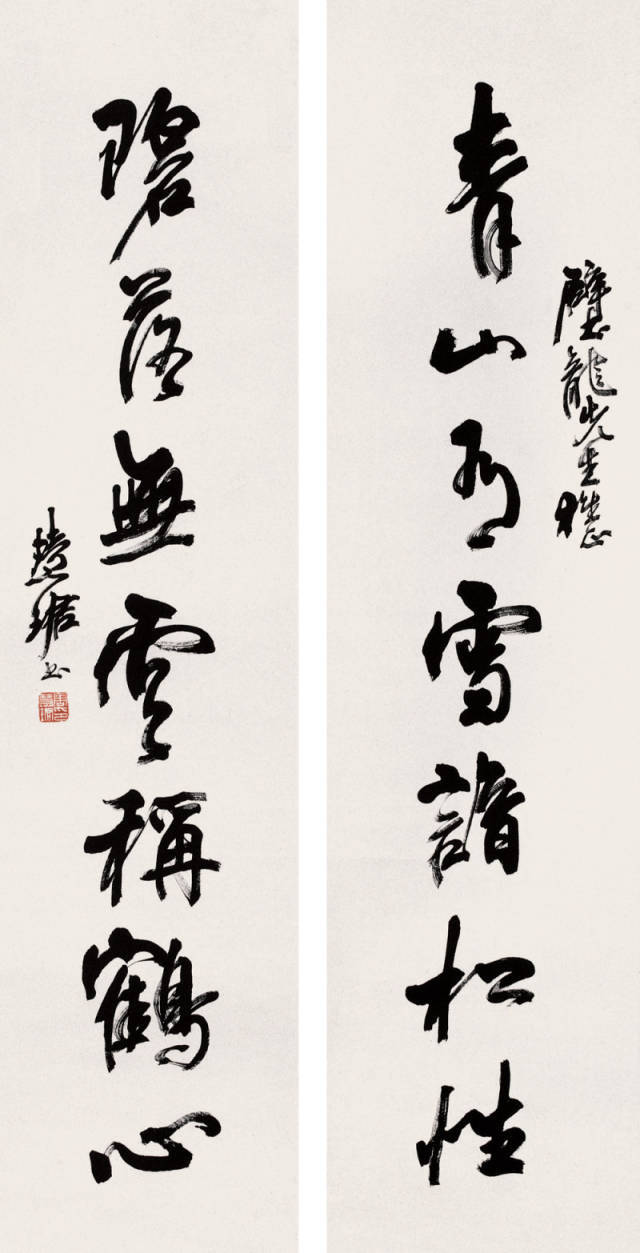 青山有雪諳松性
龍先生雅正
碧落無雲稱鶴心
慧珺書